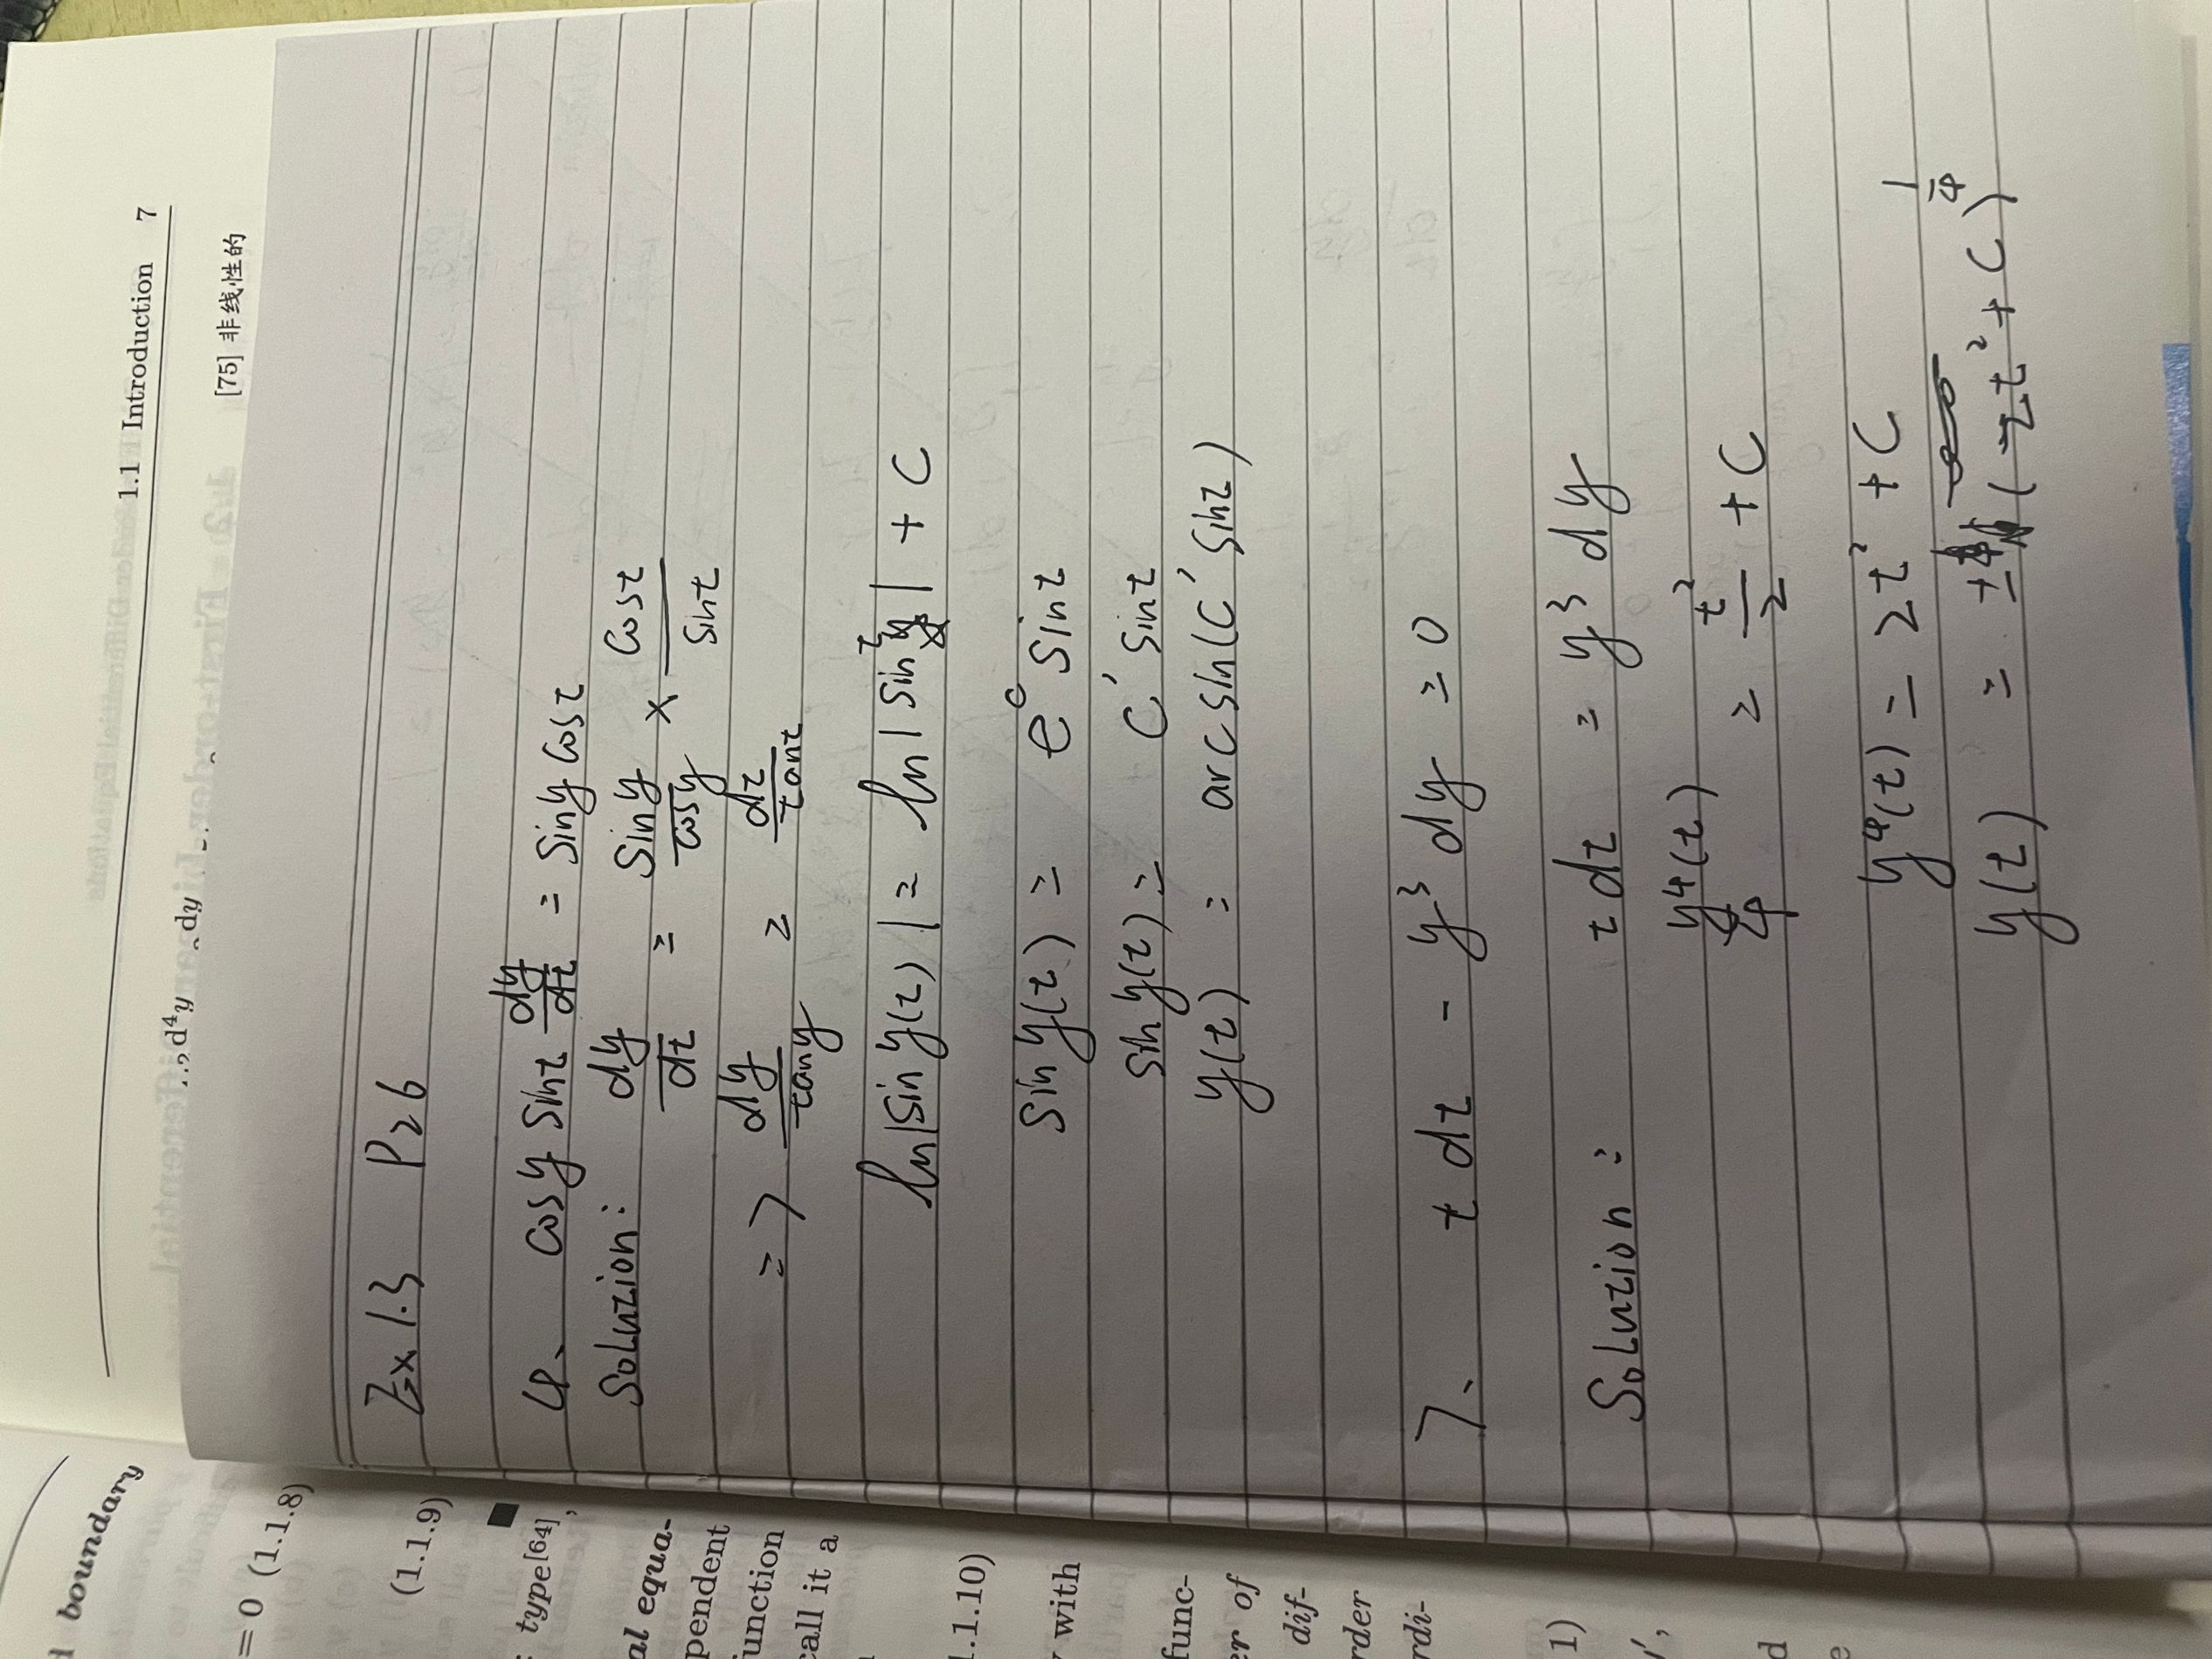 d boundary
= 0 (1.1.8)
(1.1.9)
type[64],
al equa-
pendent
function
call it a
1.1.10)
with
func-
er of
dif-
rder
rdi-
1)
y',
d
e
1.1 Introduction 7
d⁴y dy
[75] 非线性的
Ex 1.3 P26
4、 cosy sint dy/dt = siny cost
Solution: dy/dt = siny/cosy × cost/sint
=> dy/tany = dt/tant
ln|sin y(t)| = ln|sin t| + C
sin y(t) = e^c sint
sin y(t) = C' sint
y(t) = arcsin(C' sint)
7、 t dt - y³ dy = 0
Solution: t dt = y³ dy
y⁴(t)/4 = t²/2 + C
y⁴(t) = 2t² + C
y(t) = ± (2t² + C)^1/4